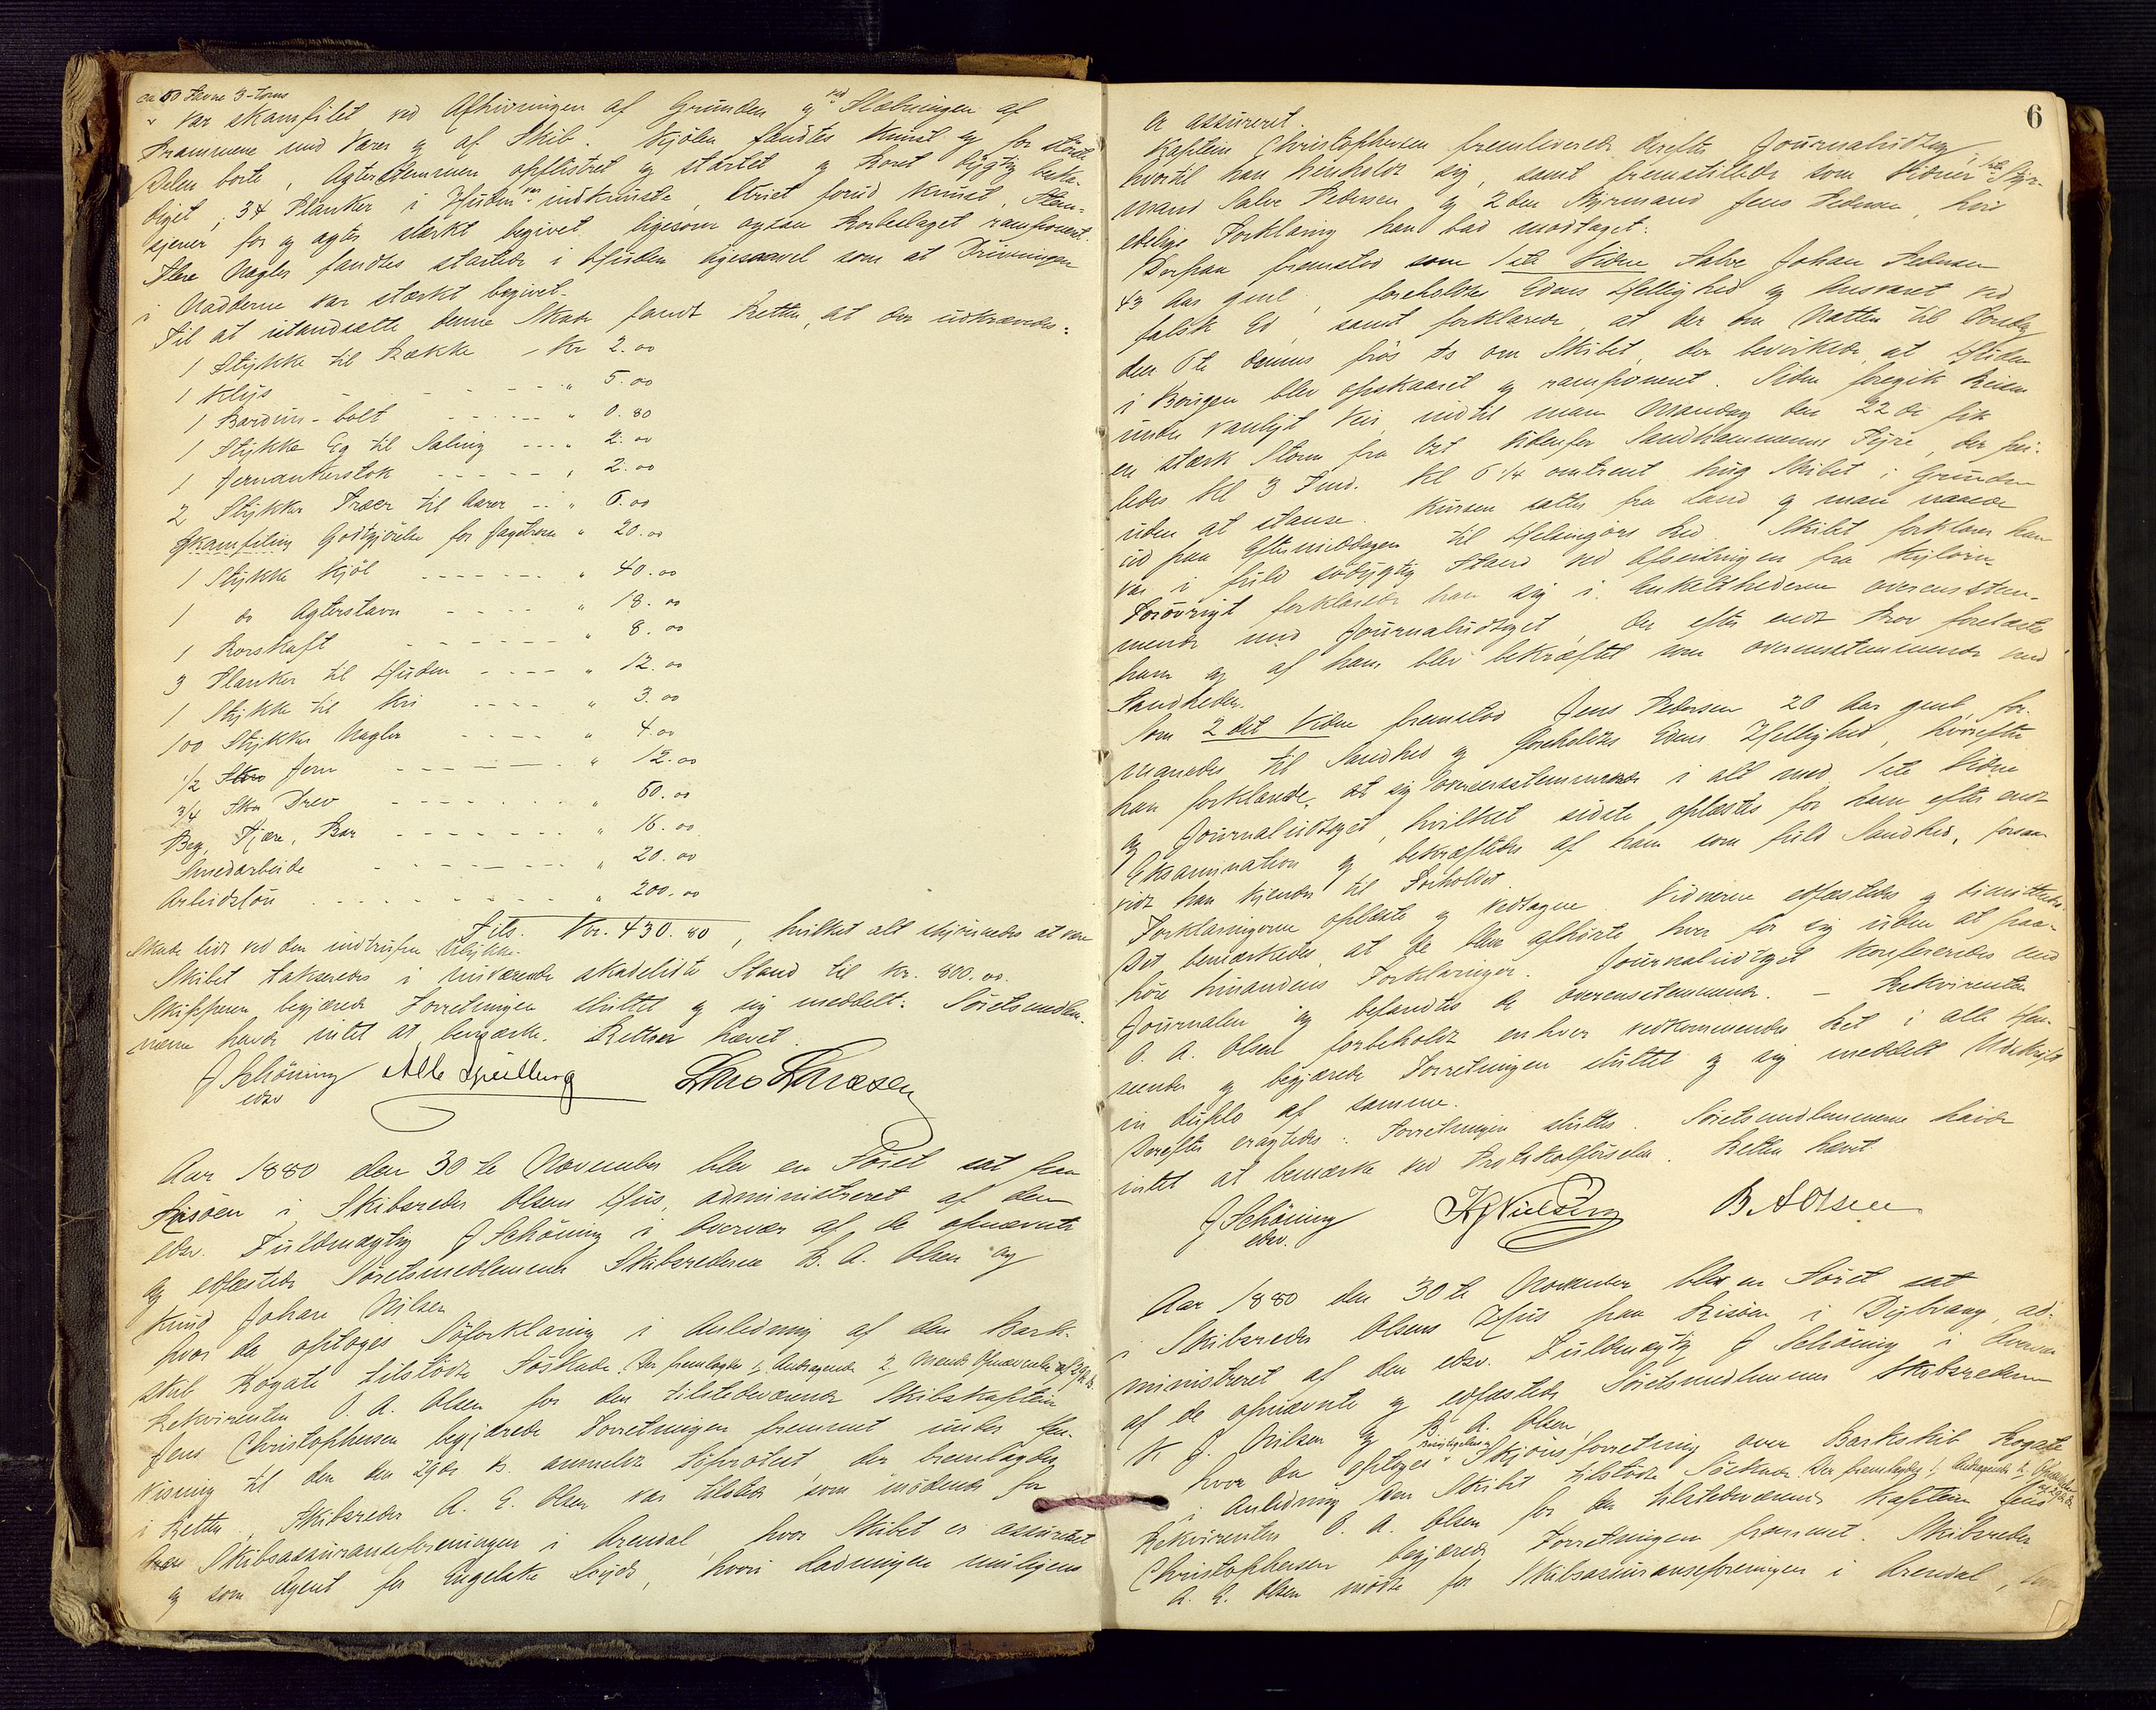 ca 50 Favne 3-toms
var skamfilet ved Afhivningen af Grunden og ved Slæbningen af
Prammene med Varer og af Skib. Kjölen fandtes knust og for störste
Delen borte, Agterstemmen opflistret og startet og Roret dygtig beska-
diget, 34 Planker i Huden var indknuste, Kriet forud knust, Stan-
sjener for og agter stærkt begivet ligesom ogsaa Rorbeslaget ramponert.
Flere Nagler fandtes startede i Huden ligesaavel som at Drivningen
i Nadderne var stærkt begivet.
Til at istandsætte denne Skade fandt Retten, at der udkrævedes:
1 Stykke til Række - Kr 2.00
1 Klys - - - - " 5.00
1 Bardun-bolt - - - - " 0.80
1 Stykke Eg til Saling - - - " 2.00
1 Jernankerstok - - - - - " 2.00
2 Stykker Træer til Aarer - - " 6.00
Skamfiling Godtgjörelse for Jagetrosse " 20.00
1 Stykke Kjöl - - - - - - - " 40.00
1 do Agterstavn - - - - " 18.00
1 Rorskaft - - - - - - " 8.00
3 Planker til Huden - - - - " 12.00
1 Stykke til Kri - - - - " 3.00
100 Stykker Nagler - - - - " 4.00
1/2 Jern - - - - - - " 12.00
3/4 Drev - - - - - - " 60.00
Beg, Tjære, Bar - - - - - - - " 16.00
Smedarbeide - - - - - - - " 20.00
Arbeidslön - - - - - - - - " 200.00
Tils. Kr. 430.80, hvilket alt skjönnedes at være
Skade lidt ved den indtrufne Ulykke.
Skibet takseredes i nuværende skadelidte Stand til Kr. 800.00.
Skipperen begjærede Forretningen sluttet og sig meddelt. Söretsmedlem-
merne havde intet at bemærke. Retten hævet.
J Schöning
edsv
Aar 1880 den 30te November blev en Söret sat paa
Risöen i Skibsreder Olsens Hus, administreret af den
edsv. Fuldmægtig J Schöning i Overvær af de opnævnte
og edfæstede Söretsmedlemmer Skibsrederne B. A. Olsen og
Knud Johan Nilsen
hvor da optoges Söforklaring i Anledning af den Bark-
skib Rogate tilstödte Söskade. Der fremlagdes 1, Andragende 2,
Rekvirenten O. A. Olsen for den tilstedeværende Skibskaptein
Jens Christophersen begjærede Forretningen fremmet under Hen-
visning til den den 29de ds. anmeldte Söprotest der fremlagdes
i Retten. Skibsreder A. E. Olsen var tilstede som mödende for
Skibsassuranceforeningen i Arendal, hvor Skibet er assureret
og som Agent for Engelske Lloyds, hvori Ladningen muligens
6
er assureret.
Kaptein Christophersen fremleverede derefter Journaludtog
hvortil han henholdt sig, samt fremstillede som Vidner 1ste Styr-
mand Salve Pedersen og 2den Styrmand Jens Pedersen, hvis
edelige Forklaring han bad modtaget.
Derpaa fremstod som 1ste Vidne Salve Johan Pedersen
43 Aar gml, foreholdtes Edens Hellighed og Ansvaret ved
falsk Ed, samt forklarede, at der om Natten til Torsdag
den 6te dennes frös Is om Skibet, der bevirkede, at Huden
i Bougen blev opskaaret og ramponeret. Siden foregik Reisen
under vanligt Veir, indtil man Mandag den 22de fik
en stærk Storm fra Ost udenfor Sandhammerens Fyre, der pei-
ledes til 3 Kml. Kl 6 1/4 omtrent hug Skibet i Grunden
uden at stanse. Kursen sattes fra Land og man naaede
ud paa Eftermiddagen til Helsingörs Red. Skibet forklarer han
var i fuld södygtig Stand ved Afseilingen fra
Forövrigt forklarede han sig i Enkelthederne overensstem-
mende med Journaludtoget, der efter endt Prov forelæstes
ham og af ham blev bekræftet som overensstemmende med
Sandheden.
Som 2det Vidne fremstod Jens Pedersen 20 Aar gml, for-
manedes til Sandhed og foreholdtes Edens Hellighed, hvorefter
han forklarede sig overensstemmende i alt med 1ste Vidne
og Journaludtoget, hvilket sidste oplæstes for ham efter endt
Eksamination og bekræftedes af ham som fuld Sandhed, forsaa-
vidt han kjender til Forholdet.
Forklaringerne oplæste og vedtagne Vidnerne edfæstedes og dimitteredes.
Det bemærkedes, at de blev afhörte hver for sig uden at paa-
höre hinandens Forklaringer. Journaludtoget konfereredes med
Journalen og befandtes de overensstemmende. - Rekvirenten
O. A. Olsen forbeholdt enhver vedkommende Ret i alle Hen-
seender og begjærede Forretningen sluttet og sig meddelt Udskrift
in duplo af samme.
Derefter eragtedes: Forretningen sluttes. Söretsmedlemmerne havde
intet at bemærke ved Protokolförselen. Retten hævet.
J Schöning K J Nielsen B. A Olsen
edsv.
Aar 1880 den 30te November blev en Söret sat
i Skibsreder Olsens Hus paa Risöen i Dybvaag, ad-
ministreret af den edsv. Fuldmægtig J Schöning i Overvær
af de opnævnte og edfæstede Söretsmedlemmer Skibsrederne
K J. Nilsen og B. A. Olsen
hvor da optoges Skjönsforretning over Barkskib Rogate
i Anledning den Skibet tilstödte Söskade. Der fremlagdes 1, Andragende
Rekvirenten O. A. Olsen for den tilstedeværende Kaptein Jens
Christophersen begjærede Forretningen fremmet. Skibsreder
A. E. Olsen mödte for Skibsassuranceforeningen i Arendal,